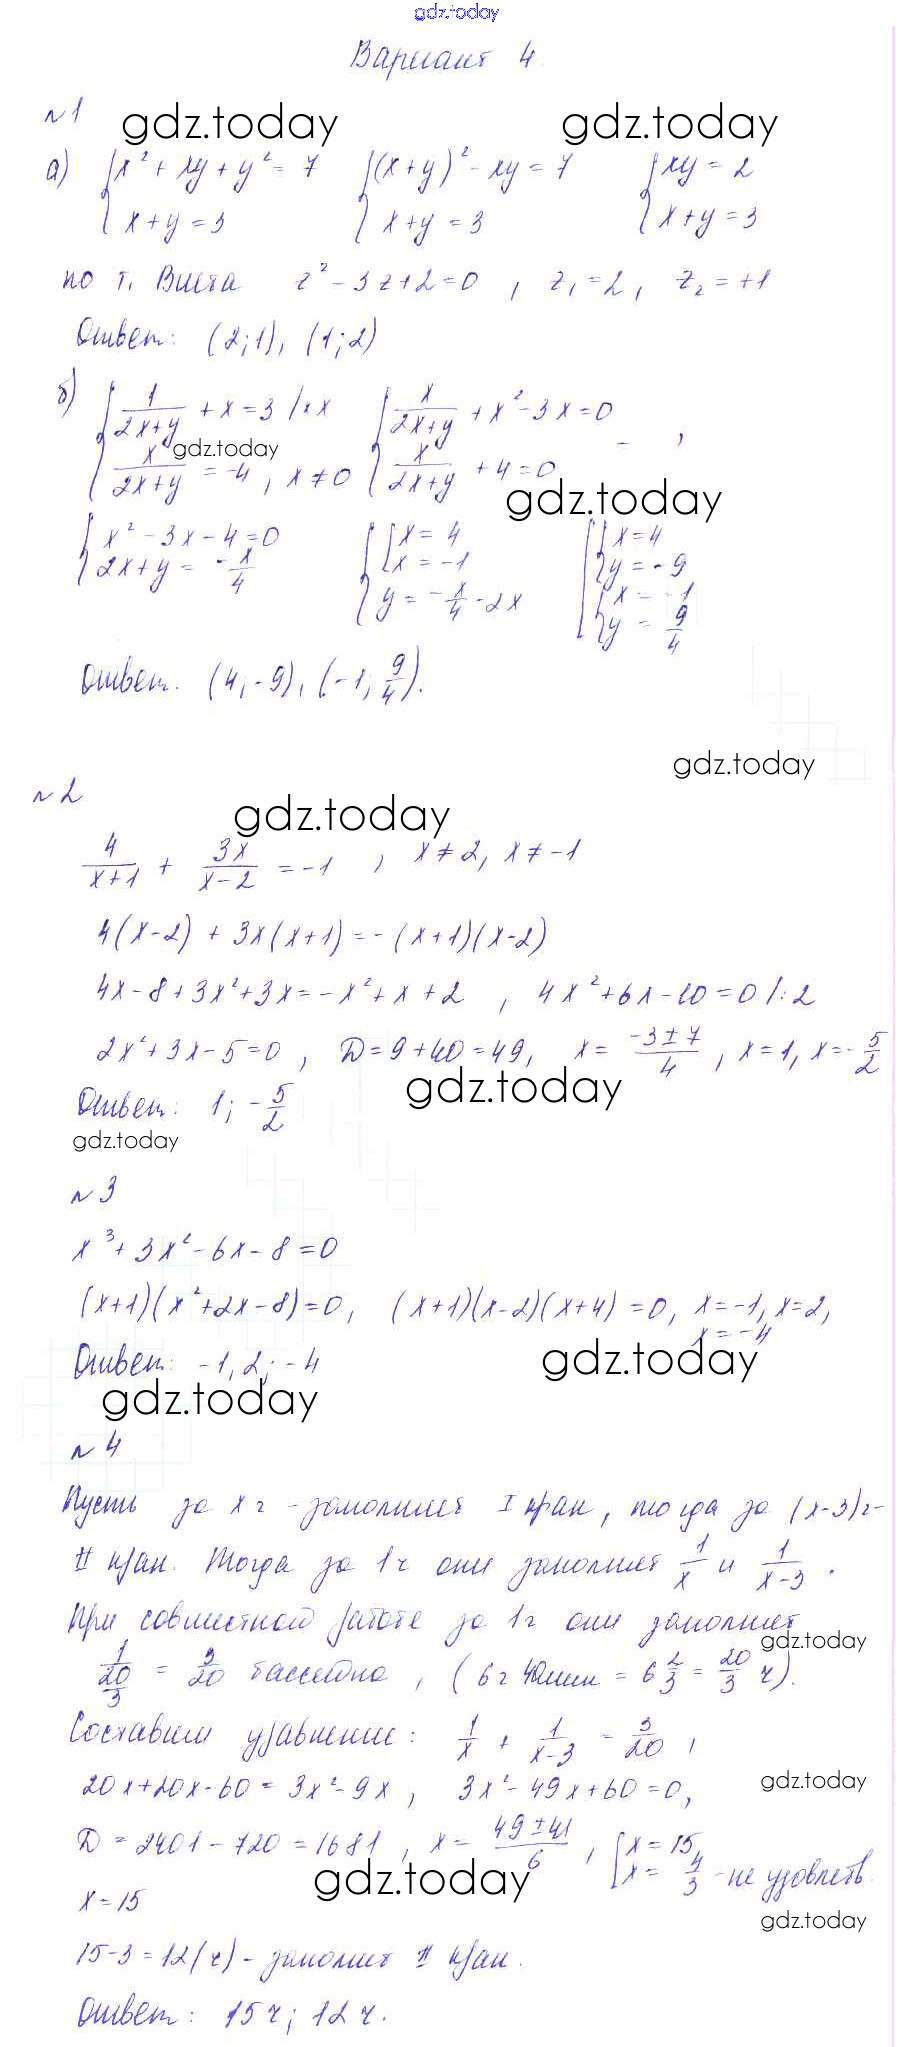 gdz.today
Вариант 4
№1
gdz.today gdz.today
а) { x² + xy + y² = 7 { (x+y)² - xy = 7 { xy = 2
x + y = 3 x + y = 3 x + y = 3
по т. Виета z² - 3z + 2 = 0 , z₁ = 2, z₂ = +1
Ответ: (2;1), (1;2)
б) { 1/(2x+y) + x = 3 /·x { x/(2x+y) + x² - 3x = 0 ,
gdz.today
x/(2x+y) = -4 , x ≠ 0 x/(2x+y) + 4 = 0
gdz.today
{ x² - 3x - 4 = 0 { [ x = 4 [ { x = 4
2x + y = -x/4 x = -1 y = -9
y = -x/4 - 2x { x = -1
y = 9/4
Ответ. (4; -9), (-1; 9/4).
gdz.today
№2
gdz.today
4/(x+1) + 3x/(x-2) = -1 , x ≠ 2, x ≠ -1
4(x-2) + 3x(x+1) = -(x+1)(x-2)
4x - 8 + 3x² + 3x = -x² + x + 2 , 4x² + 6x - 10 = 0 /:2
2x² + 3x - 5 = 0 , D = 9 + 40 = 49, x = (-3 ± 7)/4 , x = 1, x = -5/2
gdz.today
Ответ: 1; -5/2
gdz.today
№3
x³ + 3x² - 6x - 8 = 0
(x+1)(x² + 2x - 8) = 0, (x+1)(x-2)(x+4) = 0, x = -1, x = 2,
x = -4
gdz.today
Ответ: -1, 2; -4
gdz.today
№4
Пусть за x ч - заполнит I кран, тогда за (x-3) ч -
II кран. Тогда за 1 ч они заполнят 1/x и 1/(x-3) .
При совместной работе за 1 ч они заполнят
gdz.today
1/(20/3) = 3/20 бассейна , ( 6 ч 40 мин = 6 2/3 = 20/3 ч).
Составим уравнение: 1/x + 1/(x-3) = 3/20 ,
20x + 20x - 60 = 3x² - 9x , 3x² - 49x + 60 = 0,
gdz.today
D = 2401 - 720 = 1681 , x = (49 ± 41)/6 , [ x = 15,
x = 4/3 - не удовлетв.
gdz.today
x = 15
gdz.today
15 - 3 = 12 (ч) - заполнит II кран.
Ответ: 15 ч; 12 ч.